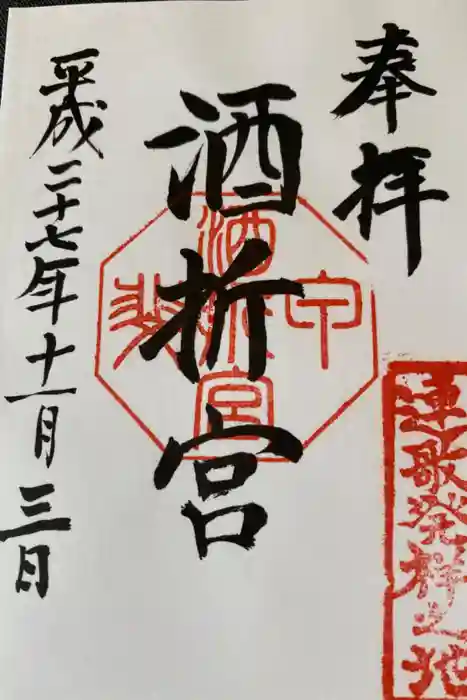 奉拝
連歌発祥之地
酒折宮
酒折宮
平成二十七年十一月三日